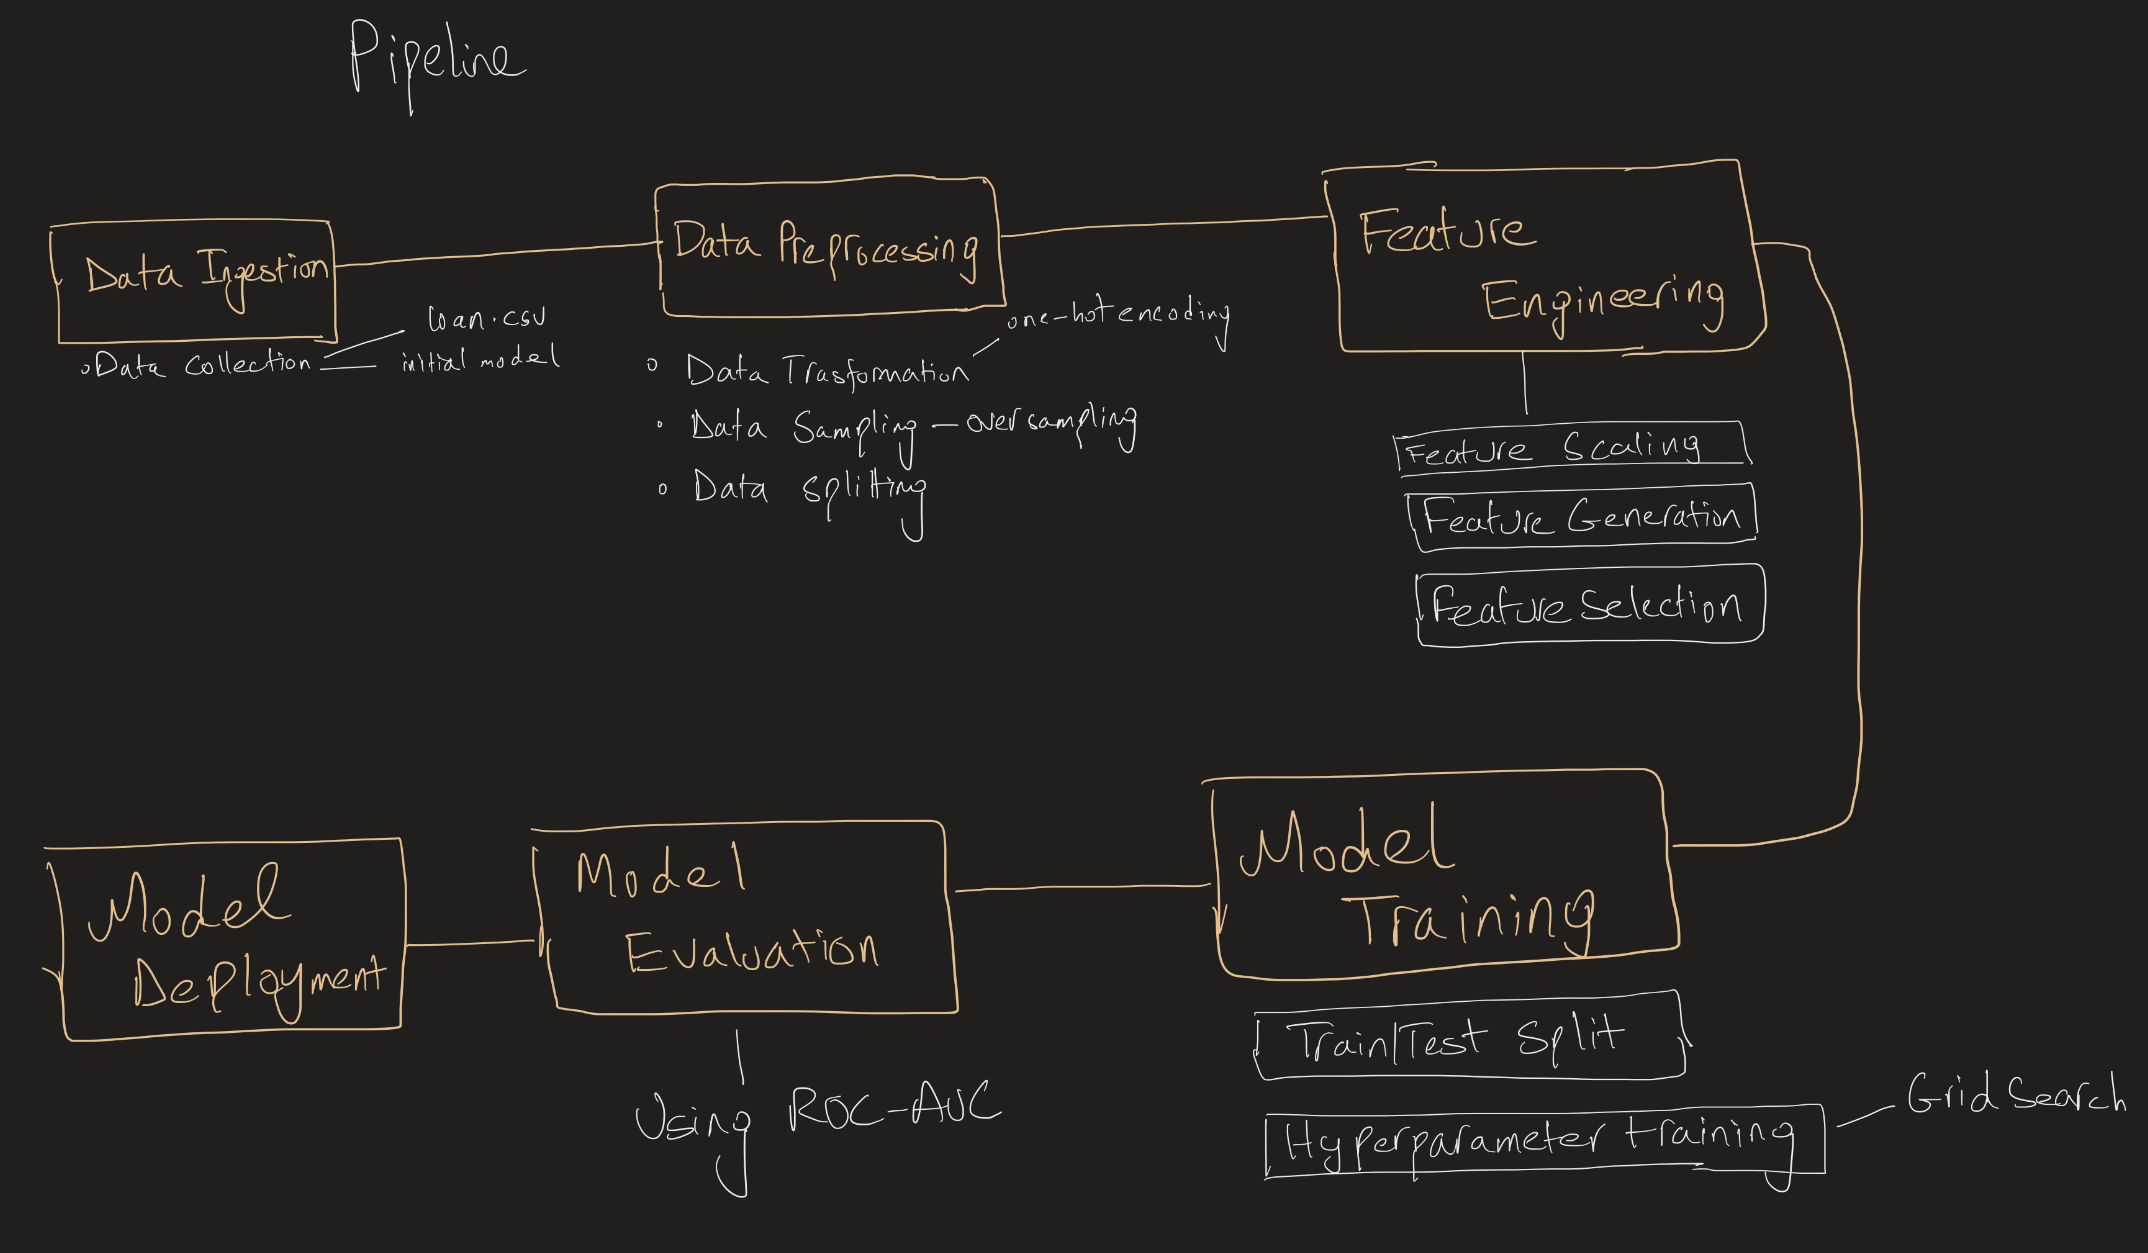 Pipeline
Data Ingestion
Data Collection
loan.csv
initial model
Data Preprocessing
Data Trasformation
one-hot encoding
Data Sampling - oversampling
Data splitting
Feature
Engineering
Feature Scaling
Feature Generation
Feature Selection
Model
Training
Train/Test Split
Hyperparameter training
Grid Search
Model
Evaluation
Using ROC-AUC
Model
Deployment